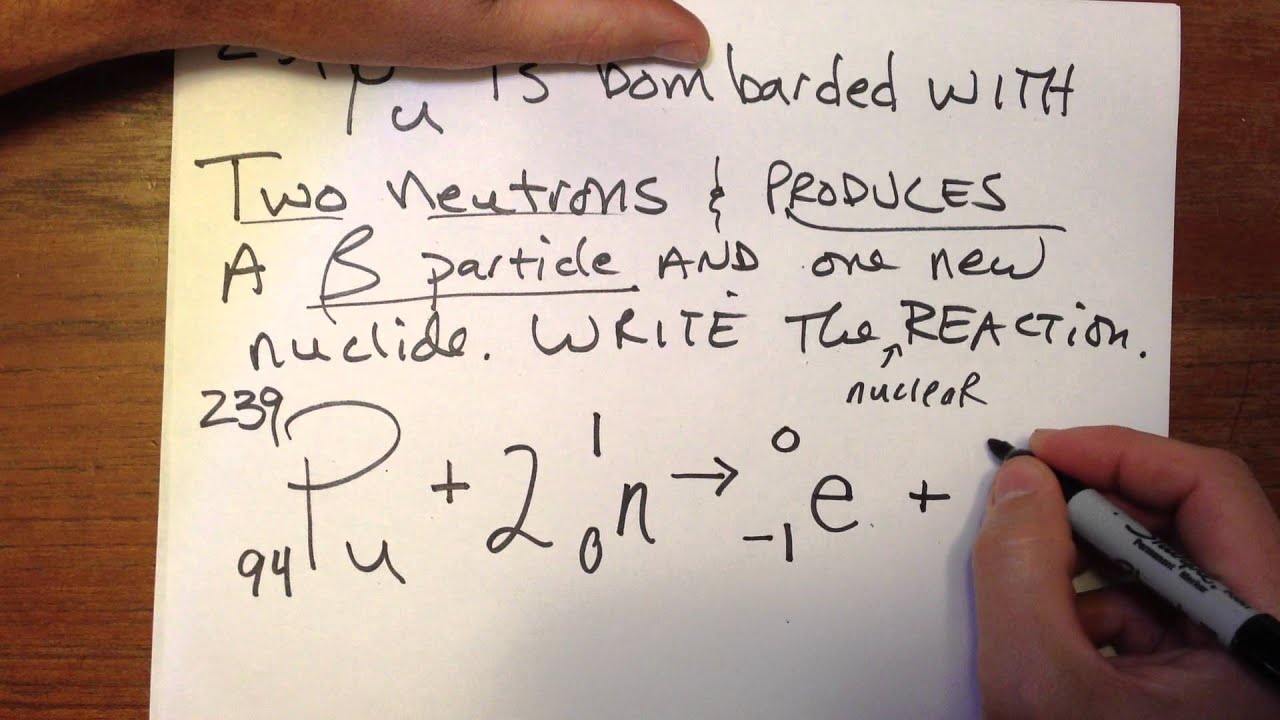 239Pu is bombarded WITH
Two neutrons & PRODUCES
A β particle AND one new
nuclide. WRITE The REACTION.
nuclear
239 94 Pu + 2 1 0 n → 0 -1 e +
Sharpie
Permanent Marker